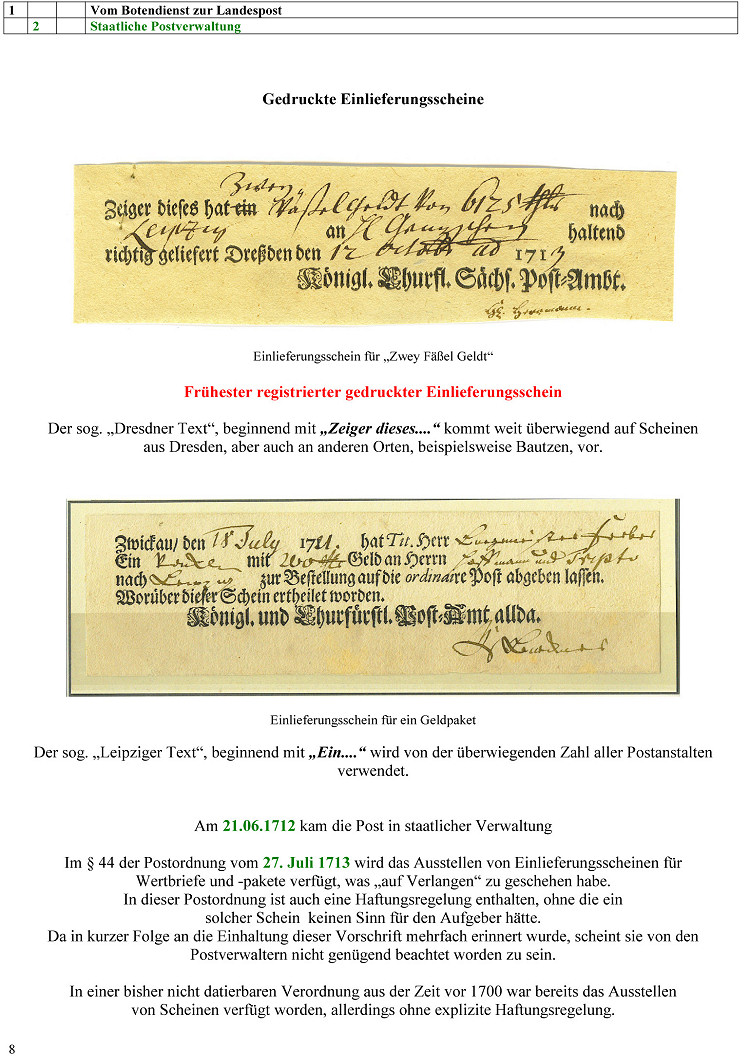 1 Vom Botendienst zur Landespost
2 Staatliche Postverwaltung
Gedruckte Einlieferungsscheine
Zwey
Zeiger dieses hat ein Väßel Geldt Von 6125 thlr nach
Leipzig an H haltend
richtig geliefert Dreßden den 12 octobr ad 1713
Königl. Churfl. Sächs. Post-Ambt.
Einlieferungsschein für „Zwey Fäßel Geldt“
Frühester registrierter gedruckter Einlieferungsschein
Der sog. „Dresdner Text“, beginnend mit „Zeiger dieses....“ kommt weit überwiegend auf Scheinen
aus Dresden, aber auch an anderen Orten, beispielsweise Bautzen, vor.
Zwickau/ den 18 July 1721. hat Tit. Herr
Ein mit Geld an Herrn und
nach Leipzig zur Bestellung auf die ordinaire Post abgeben lassen.
Worüber dieser Schein ertheilet worden.
Königl. und Churfürstl. Post-Amt allda.
Einlieferungsschein für ein Geldpaket
Der sog. „Leipziger Text“, beginnend mit „Ein....“ wird von der überwiegenden Zahl aller Postanstalten
verwendet.
Am 21.06.1712 kam die Post in staatlicher Verwaltung
Im § 44 der Postordnung vom 27. Juli 1713 wird das Ausstellen von Einlieferungsscheinen für
Wertbriefe und -pakete verfügt, was „auf Verlangen“ zu geschehen habe.
In dieser Postordnung ist auch eine Haftungsregelung enthalten, ohne die ein
solcher Schein keinen Sinn für den Aufgeber hätte.
Da in kurzer Folge an die Einhaltung dieser Vorschrift mehrfach erinnert wurde, scheint sie von den
Postverwaltern nicht genügend beachtet worden zu sein.
In einer bisher nicht datierbaren Verordnung aus der Zeit vor 1700 war bereits das Ausstellen
von Scheinen verfügt worden, allerdings ohne explizite Haftungsregelung.
8